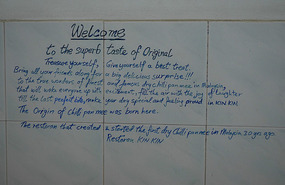 Welcome
to the superb taste of Original
Treasure yourself, Give yourself a best treat,
Bring all your friends along for a big delicious surprise!!!
to the true wonders of first and famous dry chili pan mee in Malaysia,
that will wake everyone up with excitement, fill the air with the joy of laughter
till the last perfect bite, make your day special and feeling proud in KIN KIN.
The Origin of chili pan mee was born here.
The restoran that created & started the first dry chili pan mee in Malaysia 20 years ago.
Restoran KIN KIN